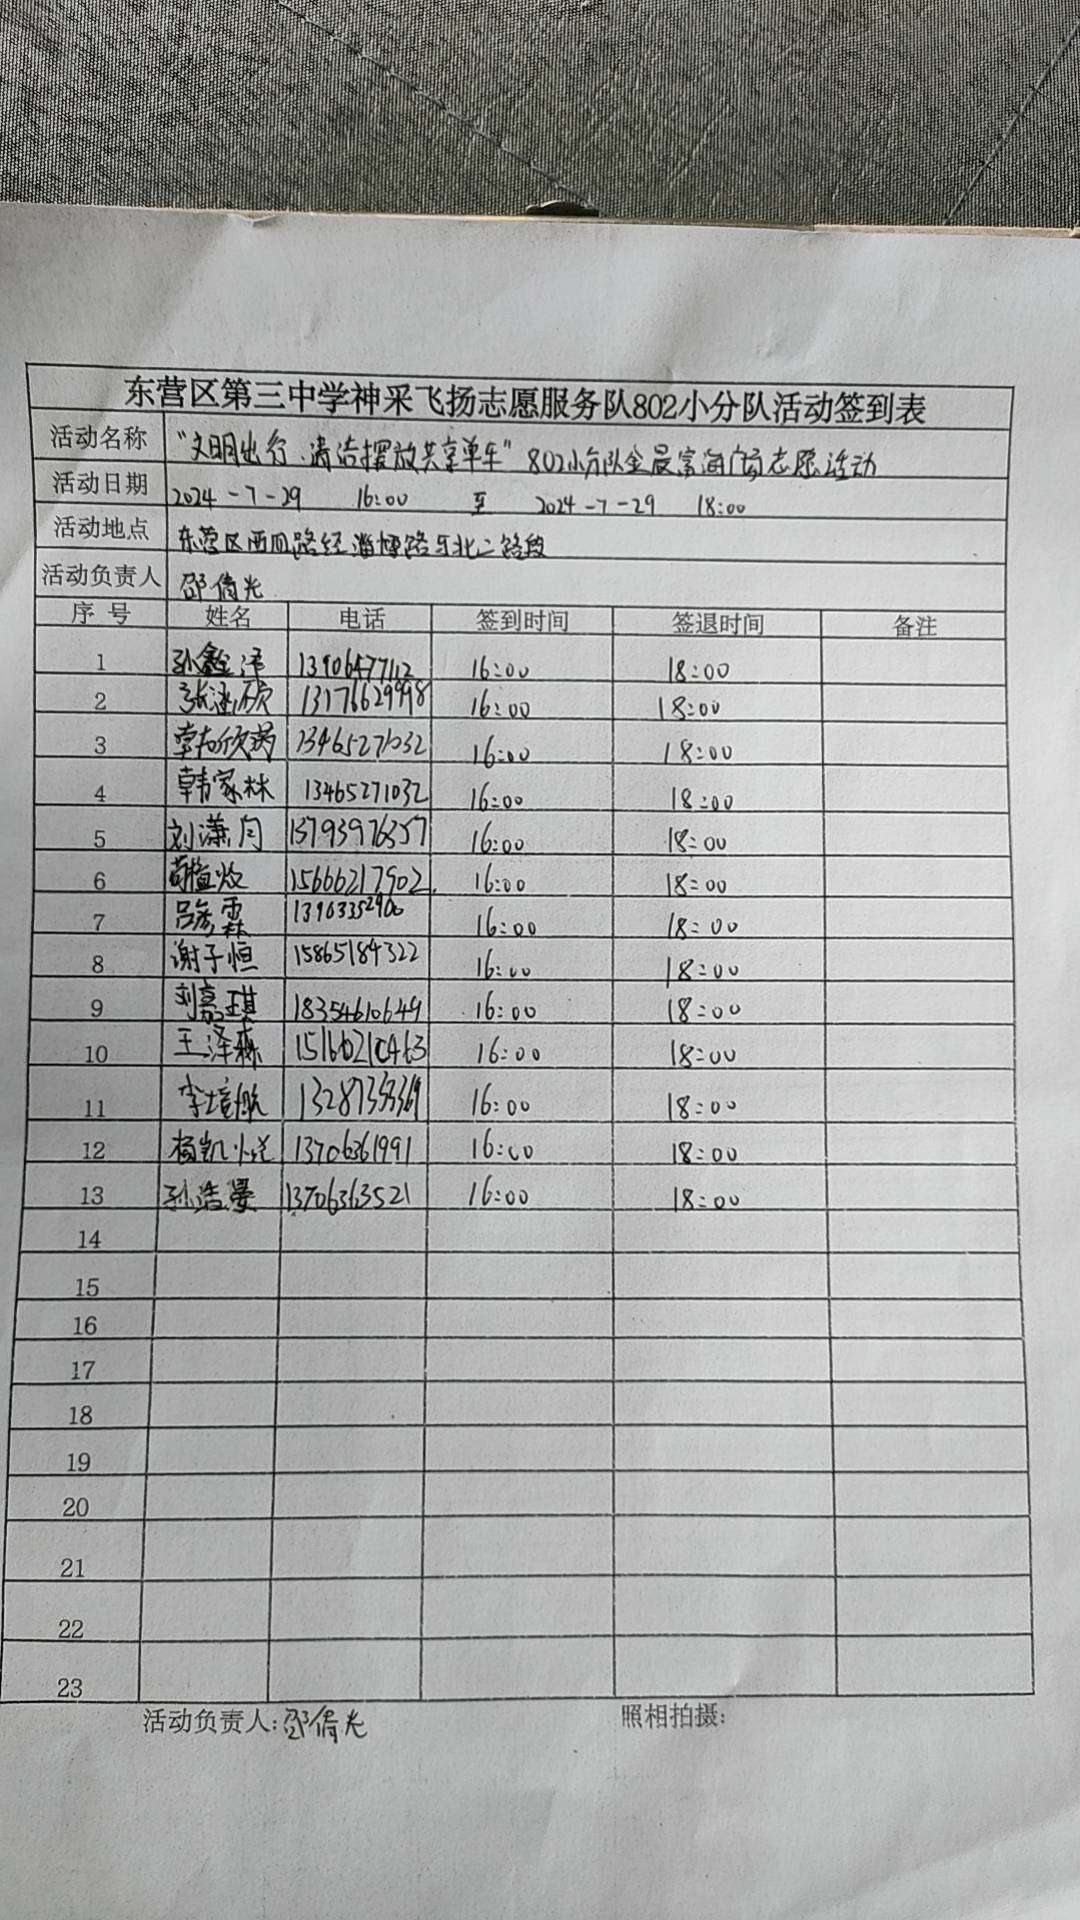 东营区第三中学神采飞扬志愿服务队802小分队活动签到表
活动名称 "文明出行、清洁摆放共享单车" 802小分队全晨富海广场志愿活动
活动日期 2024-7-29 16:00 至 2024-7-29 18:00
活动地点 东营区西四路经淄博路与北二路段
活动负责人 邵倩光
序号 姓名 电话 签到时间 签退时间 备注
1 孙鑫泽 13906477112 16:00 18:00
2 13176629998 16:00 18:00
3 16:00 18:00
4 韩家林 13465271032 16:00 18:00
5 刘潇 13793976357 16:00 18:00
6 15666217902 16:00 18:00
7 吕彦霖 16:00 18:00
8 谢子恒 15865184322 16:00 18:00
9 刘嘉琪 18354610649 16:00 18:00
10 王泽森 16:00 18:00
11 16:00 18:00
12 杨凯 13706361991 16:00 18:00
13 孙浩晏 13706363521 16:00 18:00
14
15
16
17
18
19
20
21
22
23
活动负责人:邵倩光 照相拍摄: